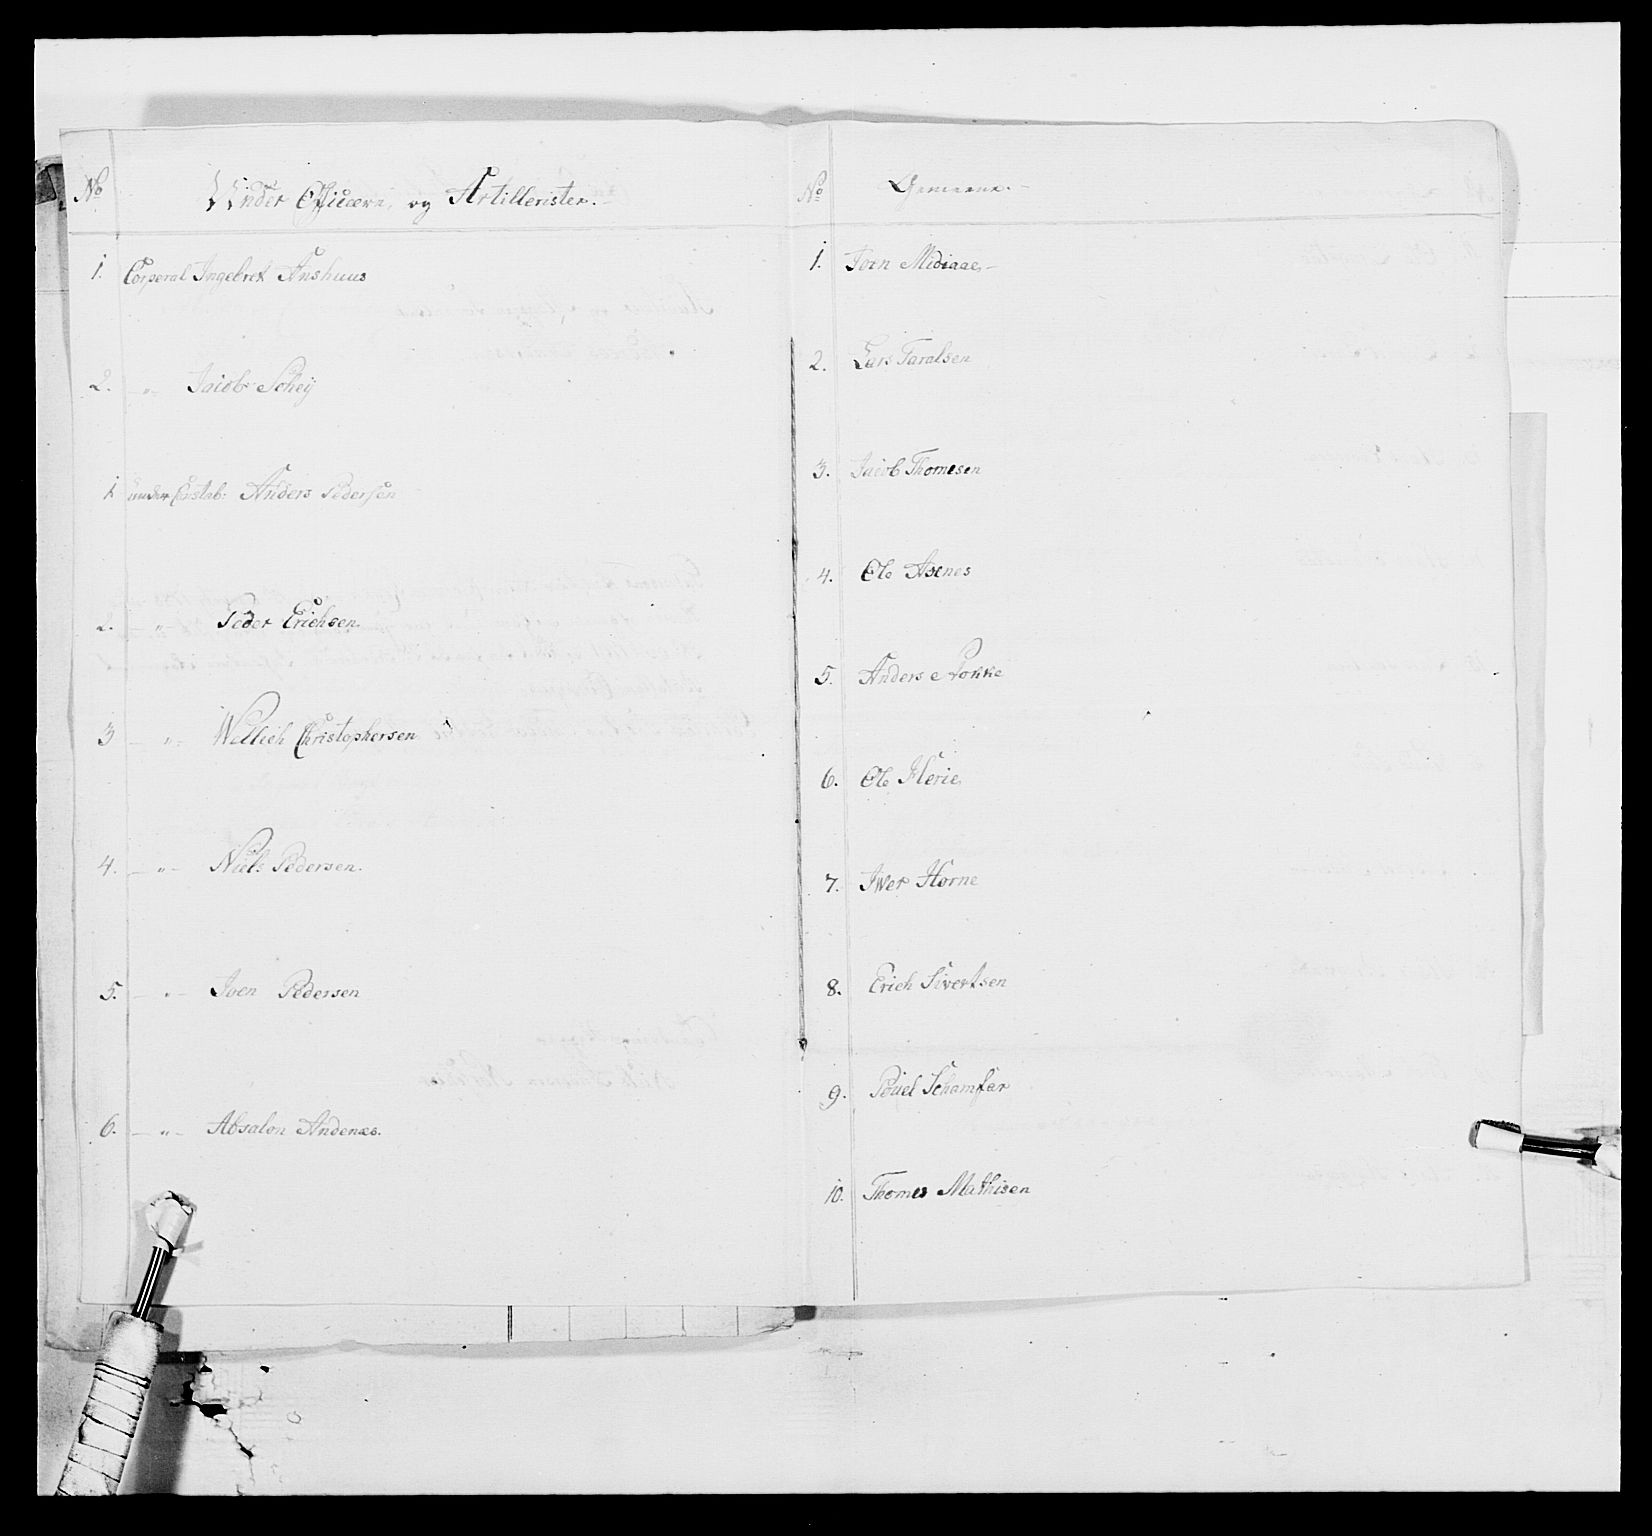 No Under Officerer, og Artillerister.
1. Corporal Ingebret Anshuus
2. — " — Jacob Scheij
1 under Constab: Anders Pedersen
2. — " — Peder Erichsen.
3 — " — Wellich Christophersen
4. — " — Niels Pedersen.
5. — " — Joen Pedersen
6. — " — Absalon Andenæs.
No Gemeene. —
1. Joen Midiaae, —
2. Lars Taralsen
3. Jacob Thomesen
4. Ole Asenes
5. Anders
6. Ole Flerie
7. Iwer Horne
8. Erich Sivertsen
9. Povel Schamfær
10. Thomes Mathisen